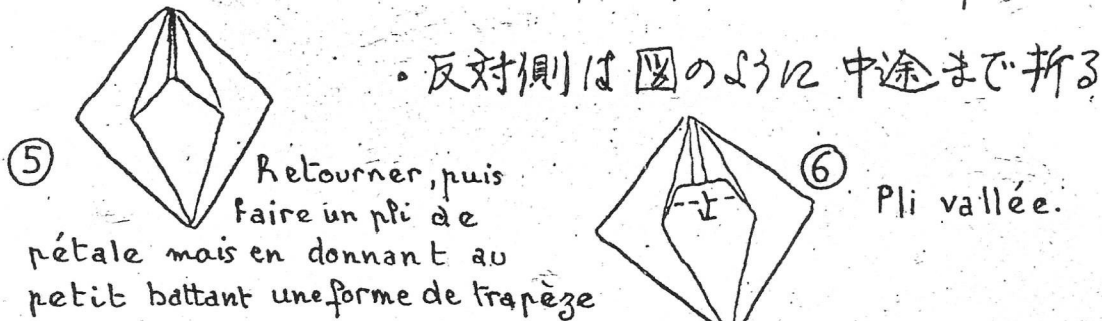 ・反対側は図のように中途まで折る
⑤
Retourner, puis
faire un pli de
pétale mais en donnant au
petit battant une forme de trapèze
⑥
Pli vallée.